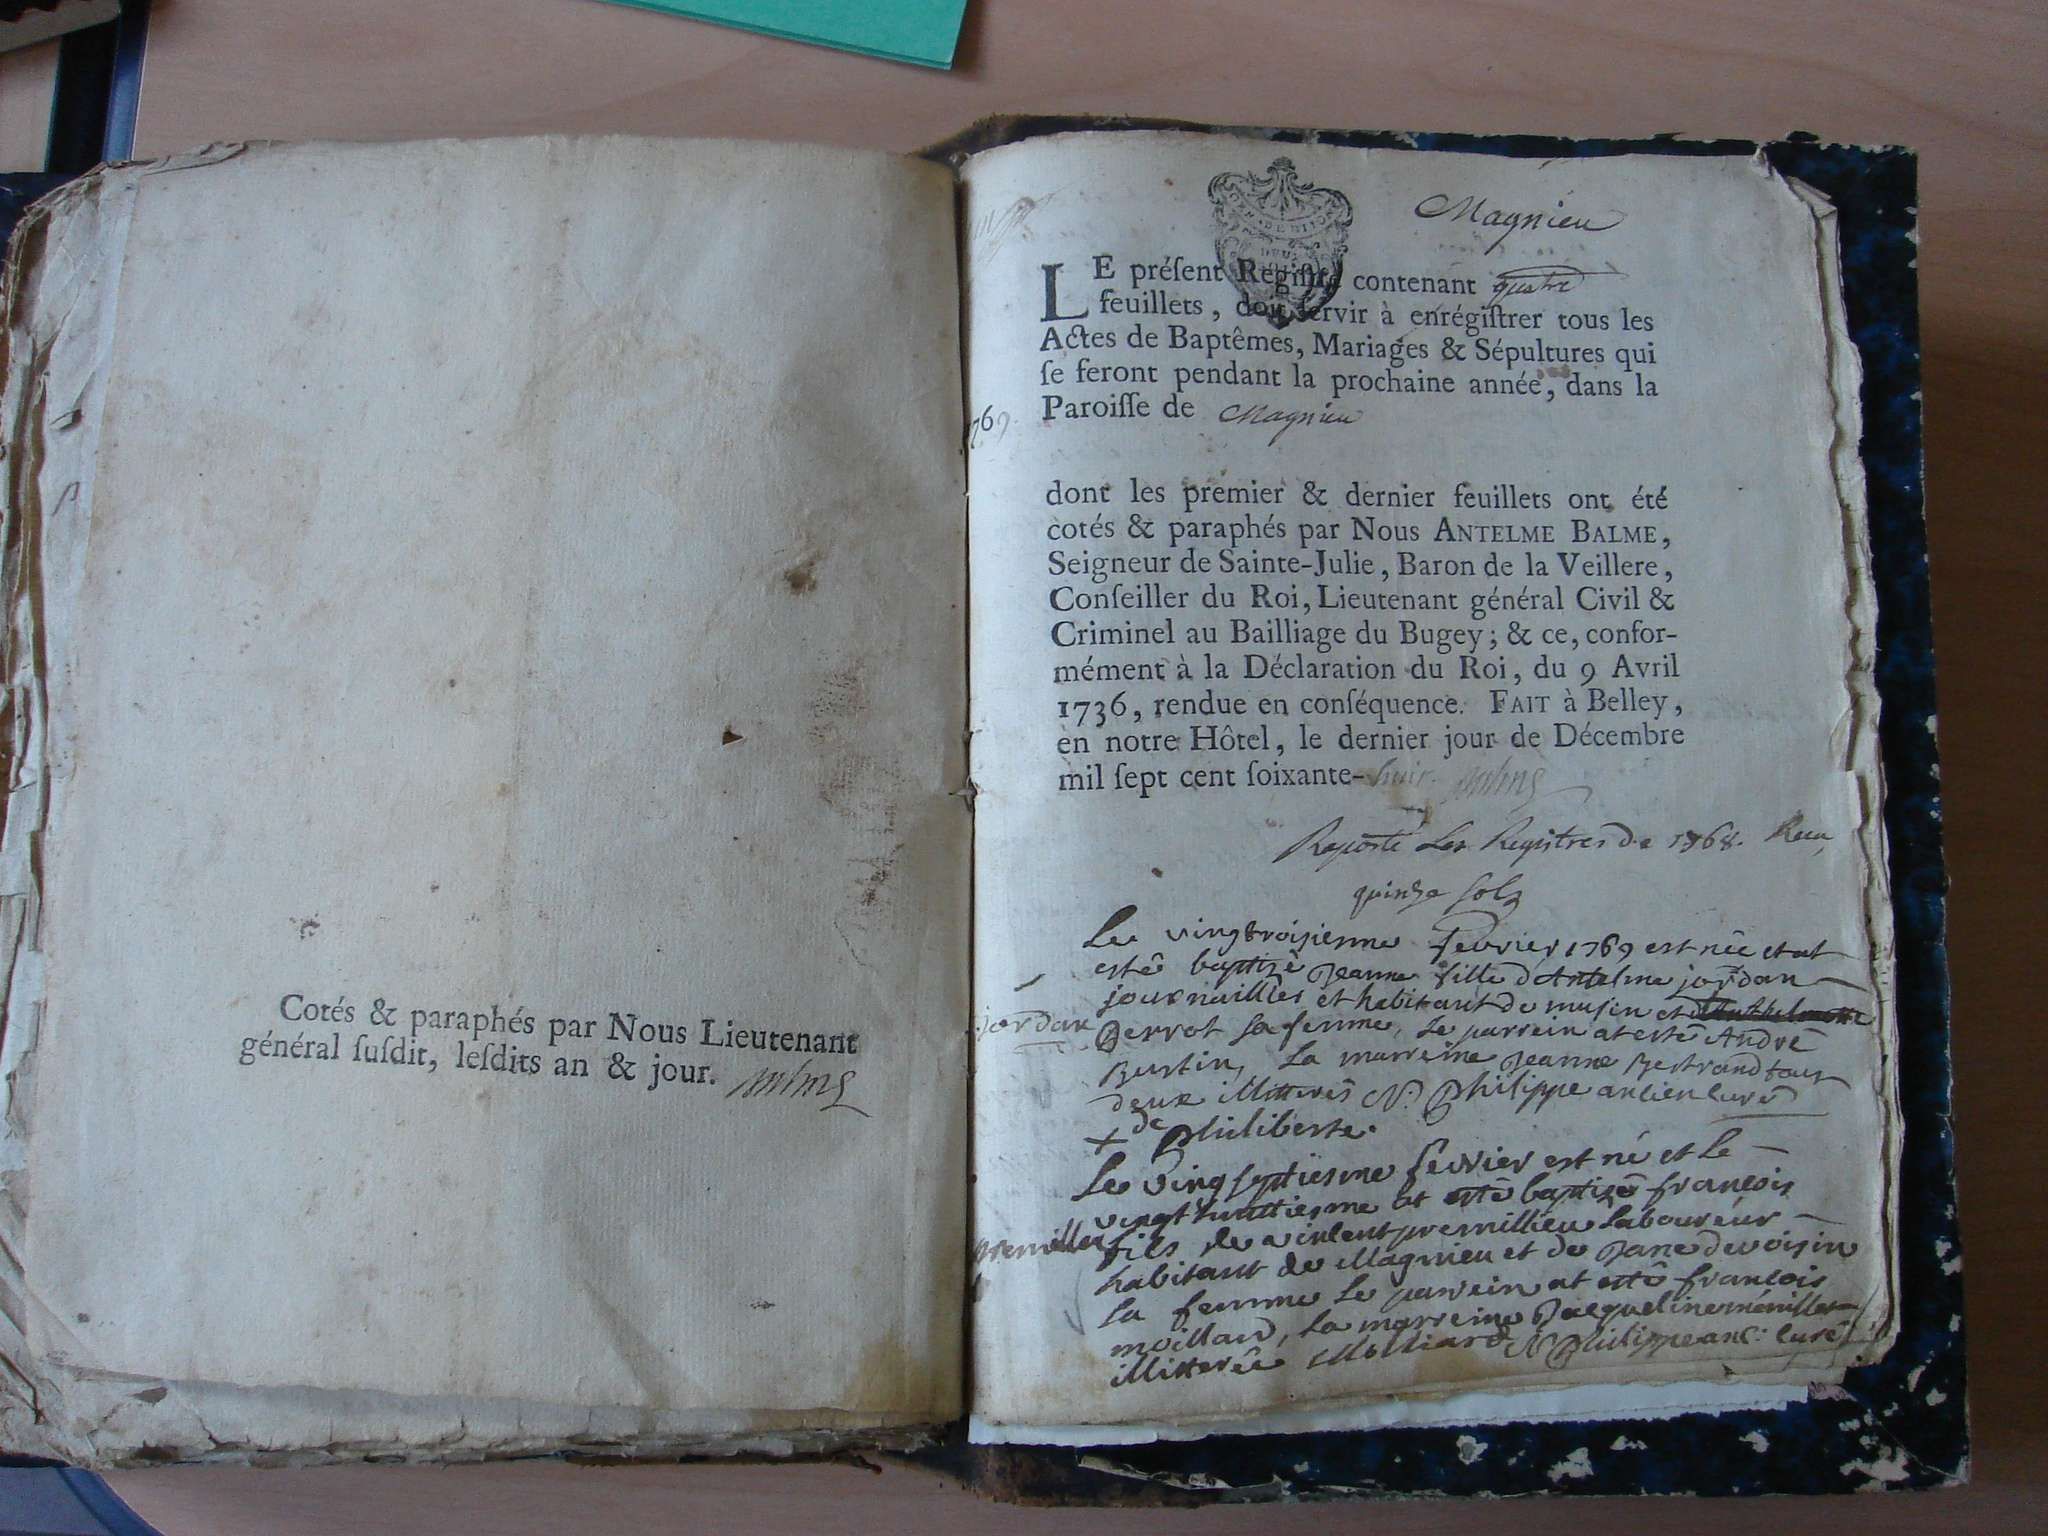 Cotés & paraphés par Nous Lieutenant
général ſuſdit, leſdits an & jour.
Magnieu
LE préſent Regiſtre contenant quatre
feuillets, doit ſervir à enrégiſtrer tous les
Actes de Baptêmes, Mariages & Sépultures qui
ſe feront pendant la prochaine année, dans la
Paroiſſe de Magnieu
1769.
dont les premier & dernier feuillets ont été
cotés & paraphés par Nous ANTELME BALME,
Seigneur de Sainte-Julie, Baron de la Veillere,
Conſeiller du Roi, Lieutenant général Civil &
Criminel au Bailliage du Bugey; & ce, confor-
mément à la Déclaration du Roi, du 9 Avril
1736, rendue en conſéquence. FAIT à Belley,
en notre Hôtel, le dernier jour de Décembre
mil ſept cent ſoixante-huit.
Raporté Les Registres de 1768. Reçu
quinze sols
Le vingtroisiesme fevrier 1769 est née et at
esté baptizé Jeanne fille d'Antelme jordan
journaillier et habitant de musin et
jordan
Perrot sa femme, Le parrein at esté André
Bustin, La marreine Jeanne Bertrand tous
deux illitterés N: Philippe ancien curé
de Philiberte.
Le vingseptiesme fevrier est né et Le
vingt huittiesme at esté baptizé françois
premillieu
fils de vincent premillieu Laboureur
habitant de Magnieu et de Jane devoisin
sa femme Le parrein at esté françois
moillard, La marreine Jacqueline
illitterée Molliard N Philippe anc: curé